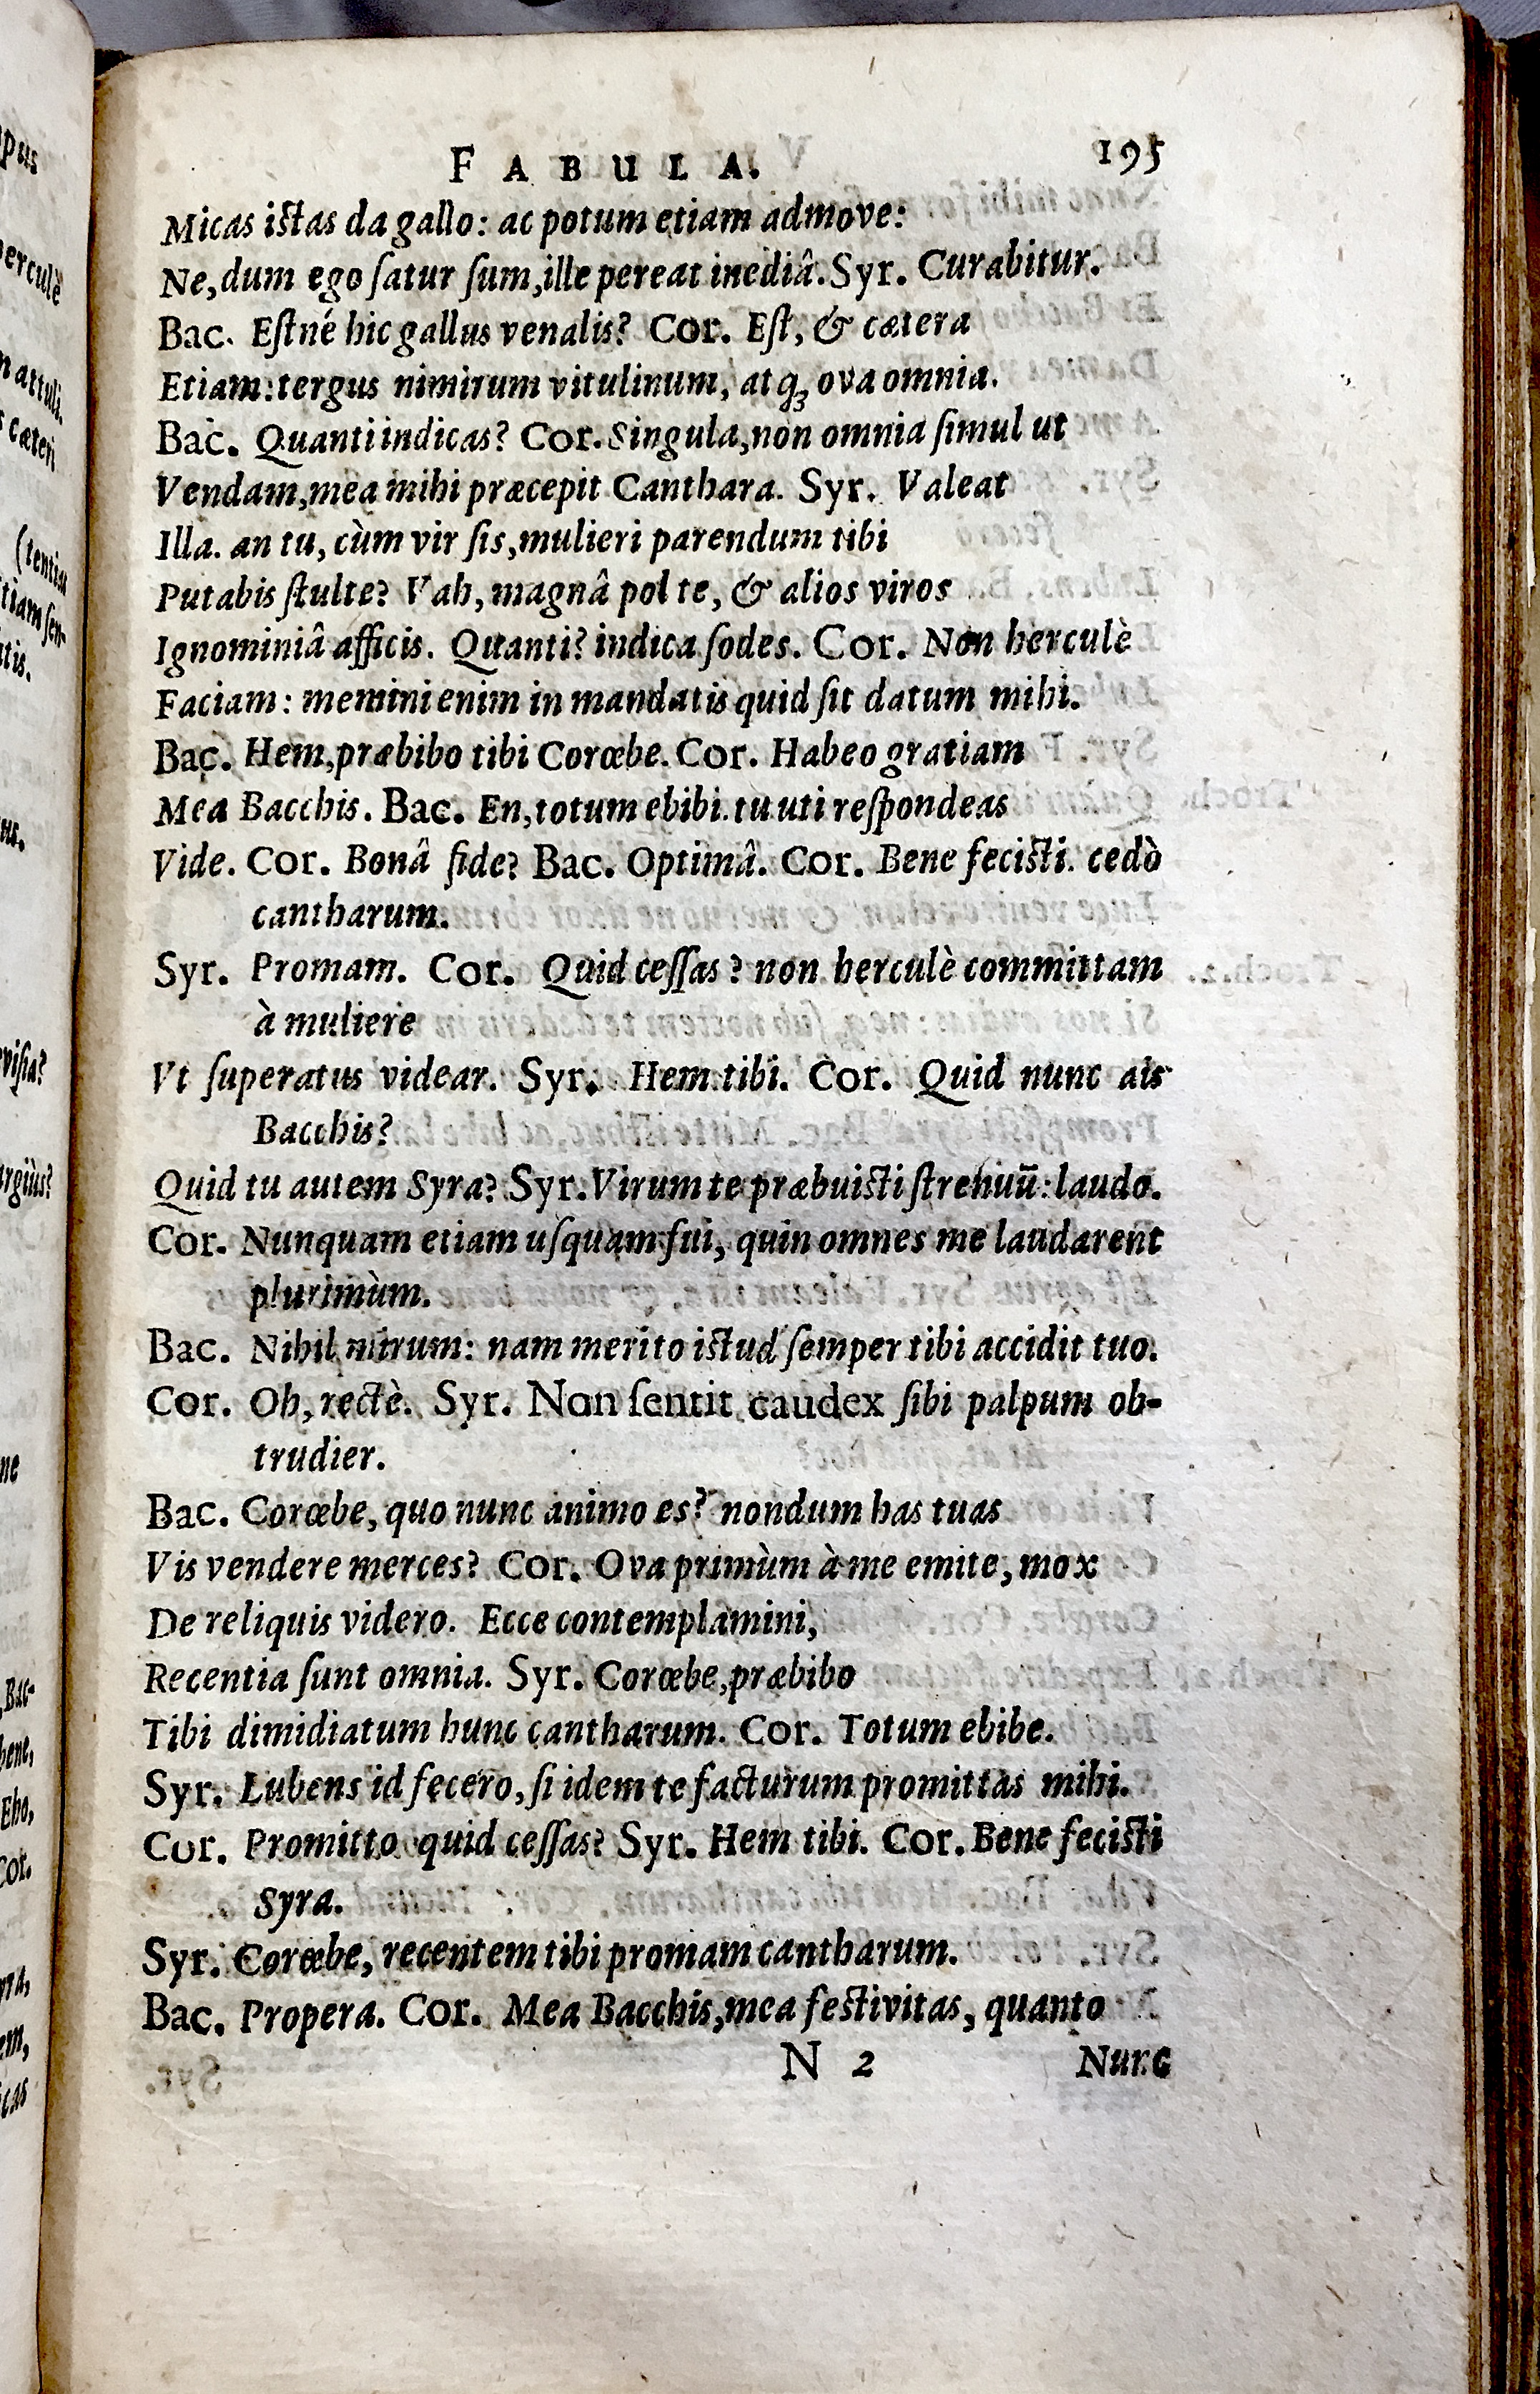 FABULA. 195
Micas istas da gallo: ac potum etiam admove:
Ne, dum ego ſatur ſum, ille pereat inediâ. Syr. Curabitur.
Bac. Eſtné hic gallus venalis? Cor. Eſt, & cætera
Etiam: tergus nimirum vitulinum, atq; ova omnia.
Bac. Quanti indicas? Cor. Singula, non omnia ſimul ut
Vendam, mea mihi præcepit Canthara. Syr. Valeat
Illa. an tu, cùm vir ſis, mulieri parendum tibi
Putabis ſtulte? Vah, magnâ pol te, & alios viros
Ignominiâ afficis. Quanti? indica ſodes. Cor. Non herculè
Faciam: memini enim in mandatis quid ſit datum mihi.
Bac. Hem, præbibo tibi Corœbe. Cor. Habeo gratiam
Mea Bacchis. Bac. En, totum ebibi. tu uti reſpondeas
Vide. Cor. Bonâ fide? Bac. Optimâ. Cor. Bene fecisti. cedò
cantharum.
Syr. Promam. Cor. Quid ceſſas? non herculè committam
à muliere
Vt ſuperatus videar. Syr. Hem tibi. Cor. Quid nunc ais
Bacchis?
Quid tu autem Syra? Syr. Virum te præbuisti ſtrenuū: laudo.
Cor. Nunquam etiam uſquam fui, quin omnes me laudarent
plurimùm.
Bac. Nihil mirum: nam merito istud ſemper tibi accidit tuo.
Cor. Oh, rectè. Syr. Non ſentit caudex ſibi palpum ob-
trudier.
Bac. Corœbe, quo nunc animo es? nondum has tuas
Vis vendere merces? Cor. Ova primùm à me emite, mox
De reliquis videro. Ecce contemplamini,
Recentia ſunt omnia. Syr. Corœbe, præbibo
Tibi dimidiatum hunc cantharum. Cor. Totum ebibe.
Syr. Lubens id fecero, ſi idem te facturum promittas mihi.
Cor. Promitto. quid ceſſas? Syr. Hem tibi. Cor. Bene fecisti
Syra.
Syr. Corœbe, recentem tibi promam cantharum.
Bac. Propera. Cor. Mea Bacchis, mea festivitas, quanto
N 2 Nunc